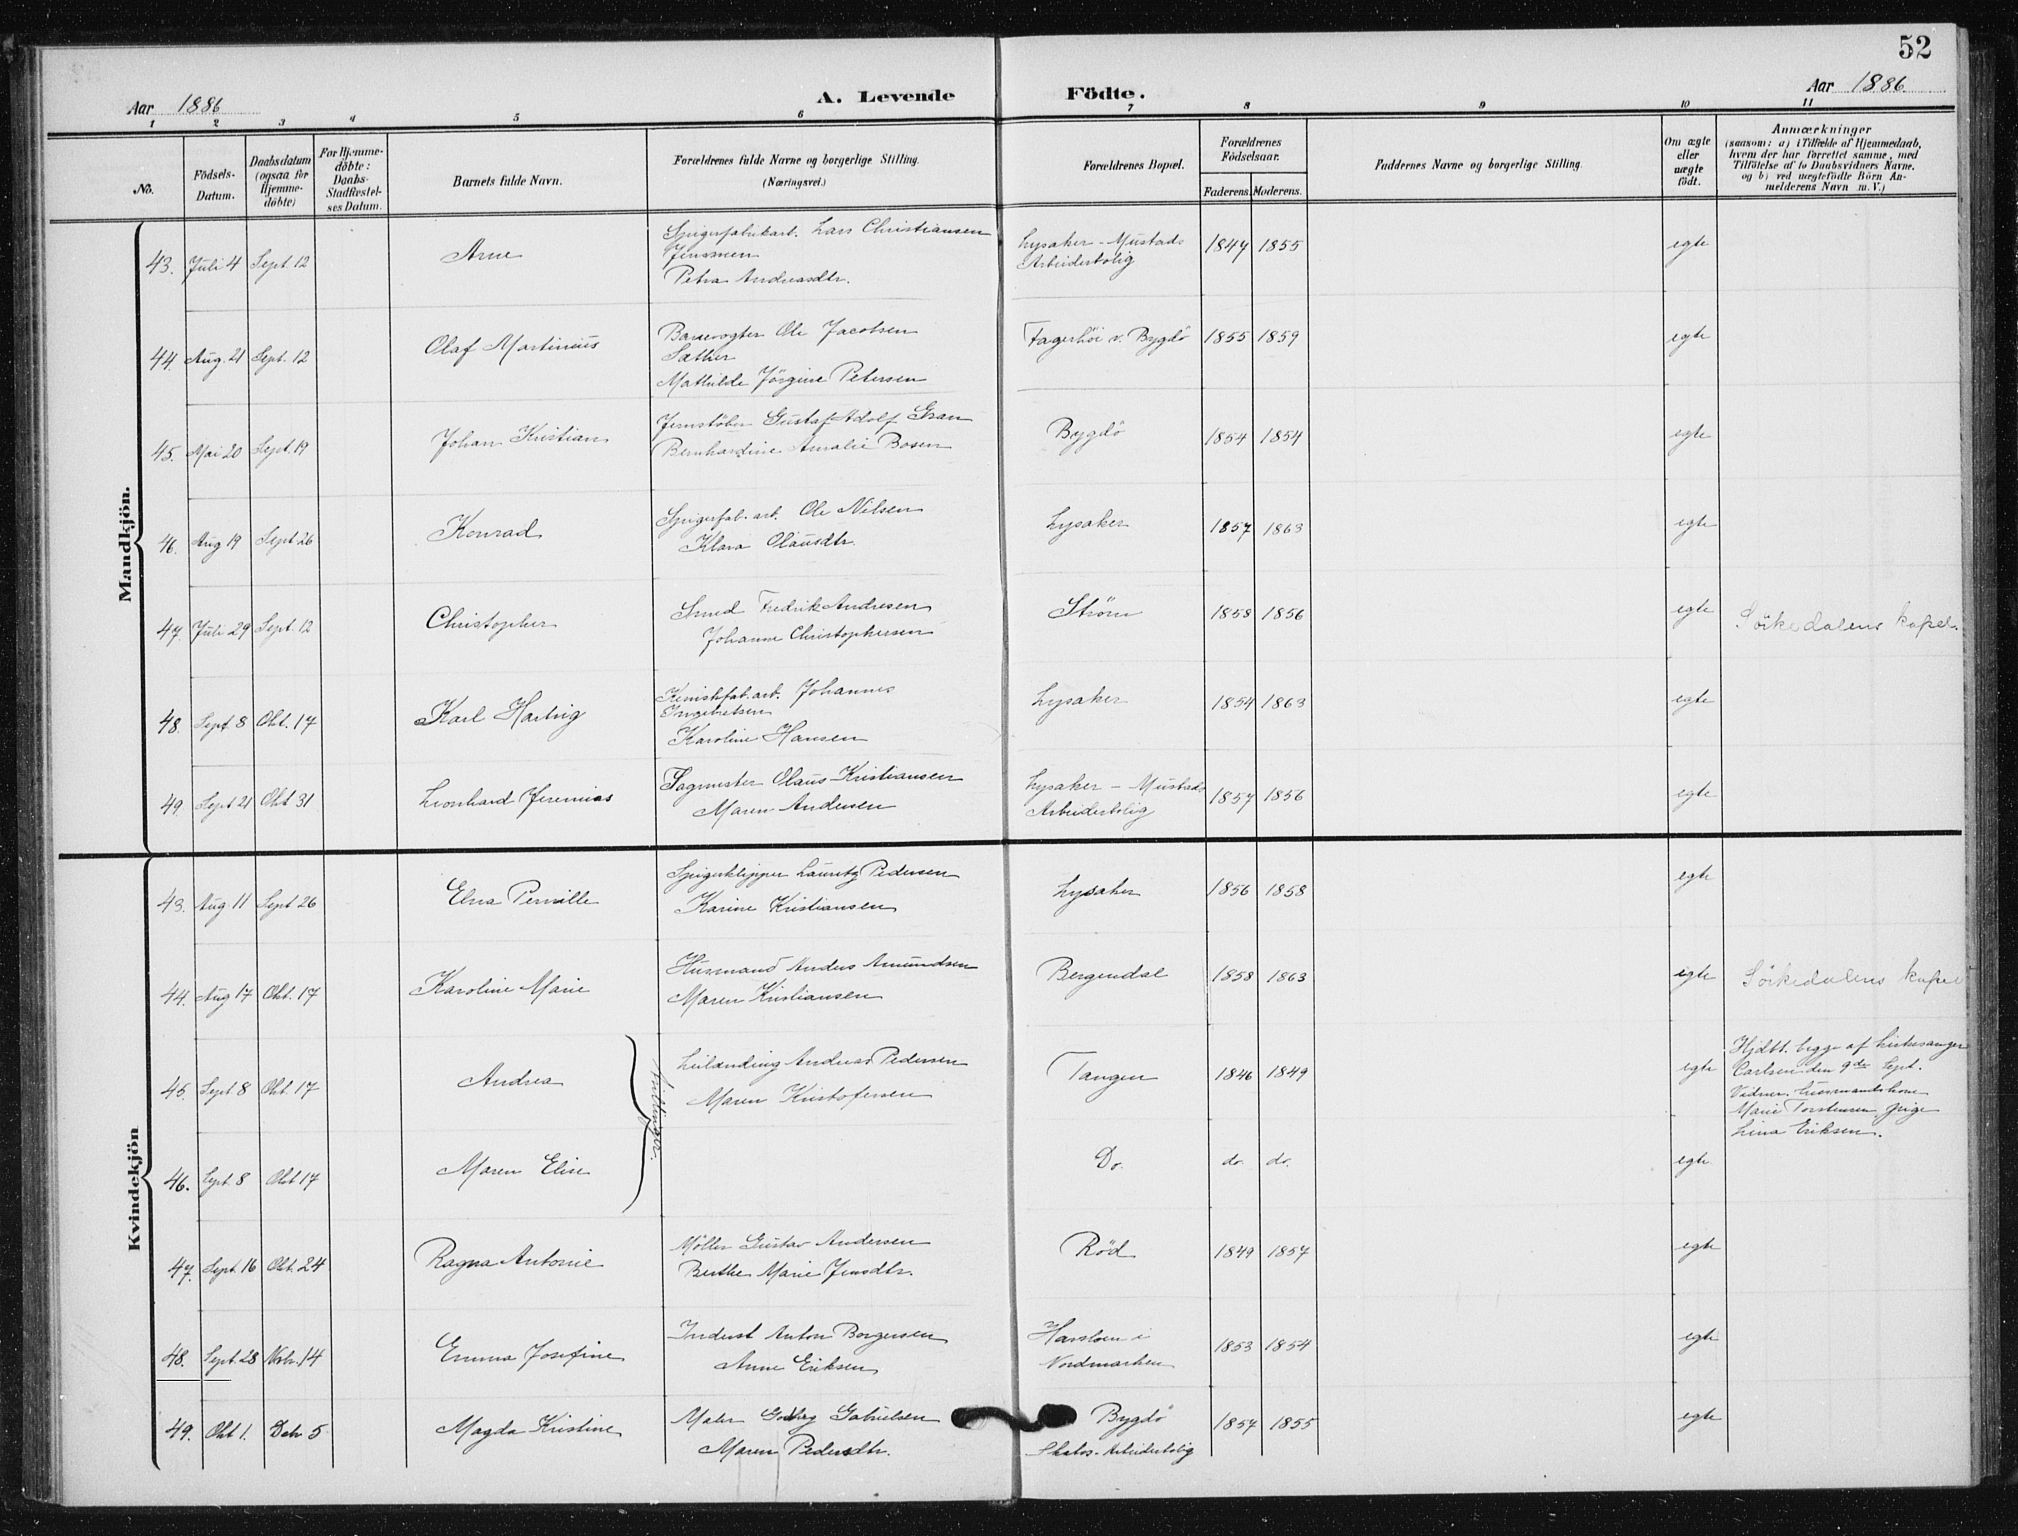 52
Aar 1886
A. Levende Födte.
Aar 1886.
1 2 3 4 5 6 7 8 9 10 11
No.
Födsels-
Datum.
Daabsdatum
(ogsaa for
Hjemme-
döbte)
For Hjemme-
döbte:
Daabs-
Stadfæstel-
ses Datum.
Barnets fulde Navn.
Forældrenes fulde Navne og borgerlige Stilling.
(Næringsvei.)
Forældrenes Bopæl.
Forældrenes
Födselsaar.
Faderens. Moderens.
Faddernes Navne og borgerlige Stilling.
Om ægte
eller
uægte
födt.
Anmærkninger
(saasom: a) i Tilfælde af Hjemmedaab,
hvem der har forrettet samme, med
Tilföielse af to Daabsvidners Navne.
og b) ved uægtefödte Börn An-
melderens Navn m. V.)
Mandkjön.
Spigerfabrikarb. Lars Christiansen
43. Juli 4 Sept. 12 Arne Jenssen Lysaker - Mustads 1847 1855 egte
Petra Andreasdtr. Arbeiderbolig
Banevogter Ole Jacobsen
44. Aug. 21 Sept. 12 Olaf Martinius Sæther Fagerhöi v. Bygdö 1855 1859 egte
Mathilde Jörgine Petersen
Jernstöber Gustaf Adolf Gran
45. Mai 20 Sept. 19 Johan Kristian Bernhardine Amalie Bosen Bygdö 1854 1854 egte
Spigerfab. arb. Ole Nilsen
46. Aug 19 Sept 26 Konrad Klara Olausdtr. Lysaker 1857 1863 egte
Smed Fredrik Andresen
47. Juli 29 Sept. 12 Christopher Johanne Christophersen Ström 1858 1856 egte Sörkedalens kapel.
Kemiskfab. arb. Johannes
48. Sept 8 Okt. 17 Karl Hartvig Ingebretsen Lysaker 1854 1863 egte
Karoline Hansen
Sagmester Olaus Kristiansen
49. Sept 21 Okt 31 Leonhard Jeremias Maren Andersen Lysaker - Mustads 1857 1856 egte
Arbeiderbolig
Kvindekjön
Spigerklipper Lauritz Pedersen
43. Aug 11 Sept 26 Elna Pernille Karine Kristiansen Lysaker 1856 1858 egte
Husmand Anders Amundsen
44. Aug 17 Okt. 17 Karoline Marie Maren Kristiansen Bergendal 1858 1863 egte Sörkedalens kapel
Leilænding Andreas Pedersen
45. Sept 8 Okt. 17 Andrea Maren Kristofersen Tangen 1846 1849 egte
Hjdbt. begge af kirkesanger
Carlsen den 9de Sept.
Vidner: husmandskone
Marie Torstensen, pige
Lina Eriksen.
Tvillinger.
46. Sept. 8 Okt 17 Maren Elise Do. do. do. egte
Möller Gustav Andersen
47. Sept. 16 Okt. 24 Ragna Antonie Berthe Marie Jensdtr. Röd 1849 1857 egte
Inderst Anton Borgersen
48. Sept. 28 Novbr. 14 Emma Josefine Anne Eriksen i Nordmarken 1853 1854 egte
Maler Gabrielsen
49. Okt 1. Dcbr 5 Magda Kristine Maren Pedersdtr. Bygdö 1857 1855 egte
Arbeiderbolig